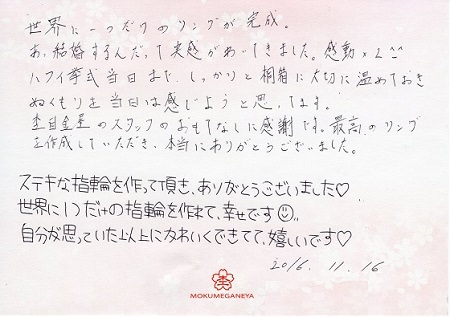 世界に一つだけのリングが完成。
あ、結婚するんだって実感がわいてきました。感動×2
ハワイ挙式当日まで、しっかりと桐箱に大切に温めておき
ぬくもりを当日は感じようと思ってます。
杢目金屋のスタッフのおもてなしに感謝です。最高のリング
を作成していただき、本当にありがとうございました。
ステキな指輪を作って頂き、ありがとうございました♡
世界に1つだけの指輪を作れて、幸せです☺!!
自分が思っていた以上にかわいくできてて、嬉しいです♡
2016. 11. 16
MOKUMEGANEYA